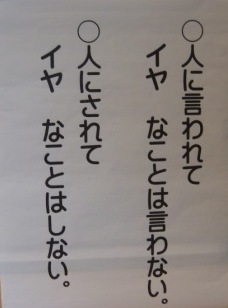 ○人に言われて
イヤ なことは言わない。
○人にされて
イヤ なことはしない。